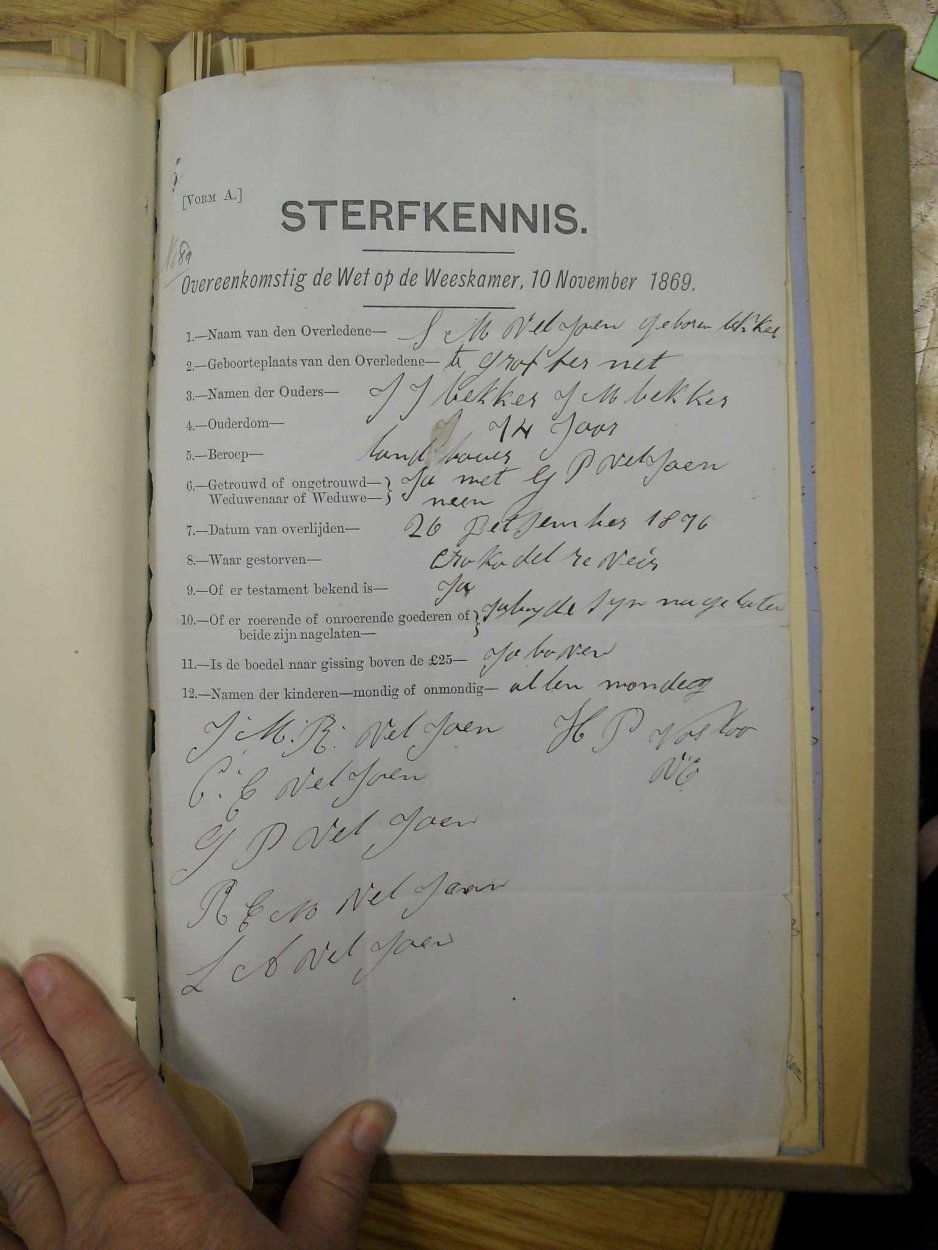 [VORM A.]
STERFKENNIS.
No 89
Overeenkomstig de Wet op de Weeskamer, 10 November 1869.
1.—Naam van den Overledene— S M Vel Joen geboren
2.—Geboorteplaats van den Overledene— te
3.—Namen der Ouders— J J bekker J M bekker
4.—Ouderdom— 74 Jaar
5.—Beroep— land bouer
6.—Getrouwd of ongetrouwd— Ja met G P Vel Joen
Weduwenaar of Weduwe— neen
7.—Datum van overlijden— 26 1896
8.—Waar gestorven— crokodel reveir
9.—Of er testament bekend is— Ja
10.—Of er roerende of onroerende goederen of Ja beyde syn nagelaten
beide zijn nagelaten—
11.—Is de boedel naar gissing boven de £25— Ja boven
12.—Namen der kinderen—mondig of onmondig— allen mondeg
J. M. R. Vel Joen H P Vosloo
C. E Vel Joen VC
G P Vel Joen
R E M Vel Joen
L A Vel Joen